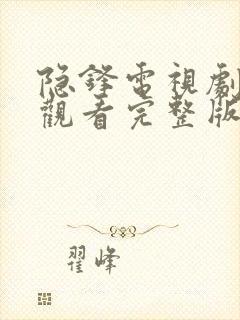 隐鋒電視劇
觀看完整版
翟峰